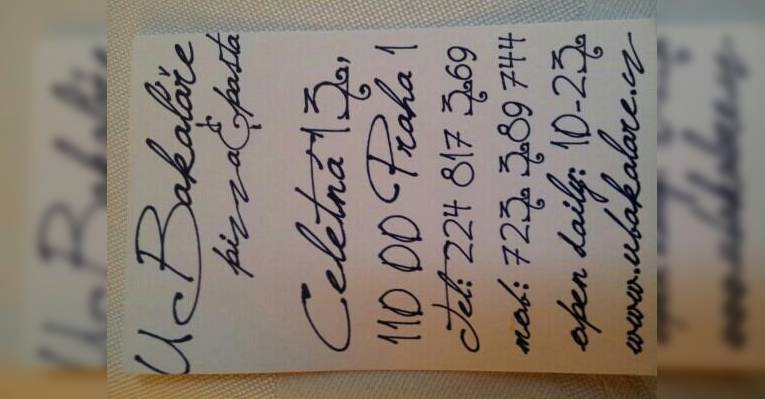 U Bakaláře
pizza & pasta
Celetná 13,
110 00 Praha 1
Tel: 224 817 369
mob: 723 389 744
open daily: 10-23
www.ubakalare.cz